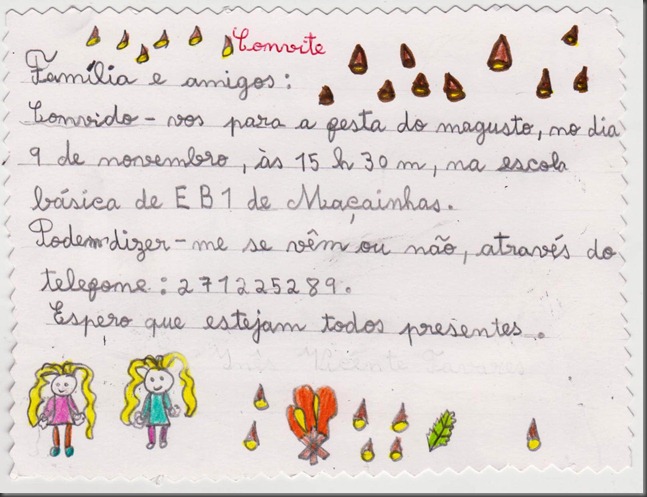 Convite
Família e amigos:
Convido-vos para a festa do magusto, no dia
9 de novembro, às 15 h 30 m, na escola
básica de EB1 de Maçainhas.
Podem dizer-me se vêm ou não, através do
telefone: 271225289.
Espero que estejam todos presentes.
Inês Vicente Tavares